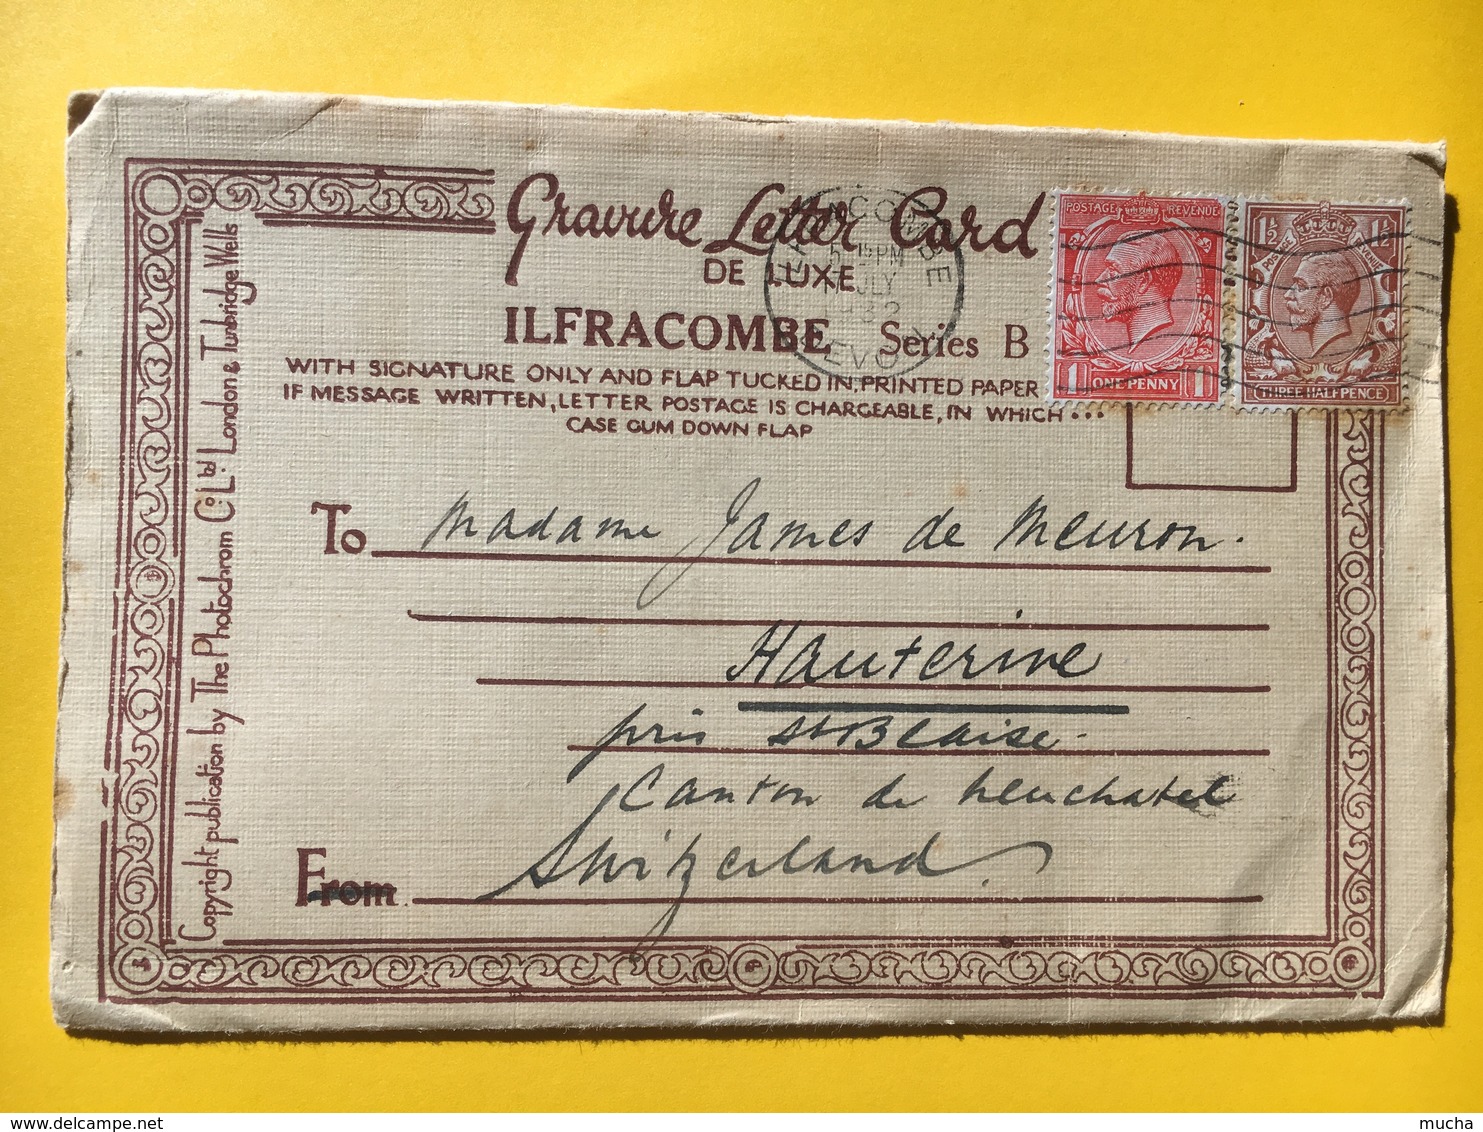 Gravure Letter Card
DE LUXE
ILFRACOMBE Series B
WITH SIGNATURE ONLY AND FLAP TUCKED IN, PRINTED PAPER
IF MESSAGE WRITTEN, LETTER POSTAGE IS CHARGEABLE, IN WHICH...
CASE GUM DOWN FLAP
ILFRACOMBE
5.15 PM
JULY
1932
DEVON
POSTAGE REVENUE
1 ONE PENNY 1
1½ 1½
POSTAGE REVENUE
THREE HALF PENCE
To Madame James de Meuron.
Hauterive
près St Blaise.
Canton de Neuchatel
From Switzerland.
Copyright publication by The Photochrom Co. Ltd. London & Tunbridge Wells
www.delcampe.net
mucha